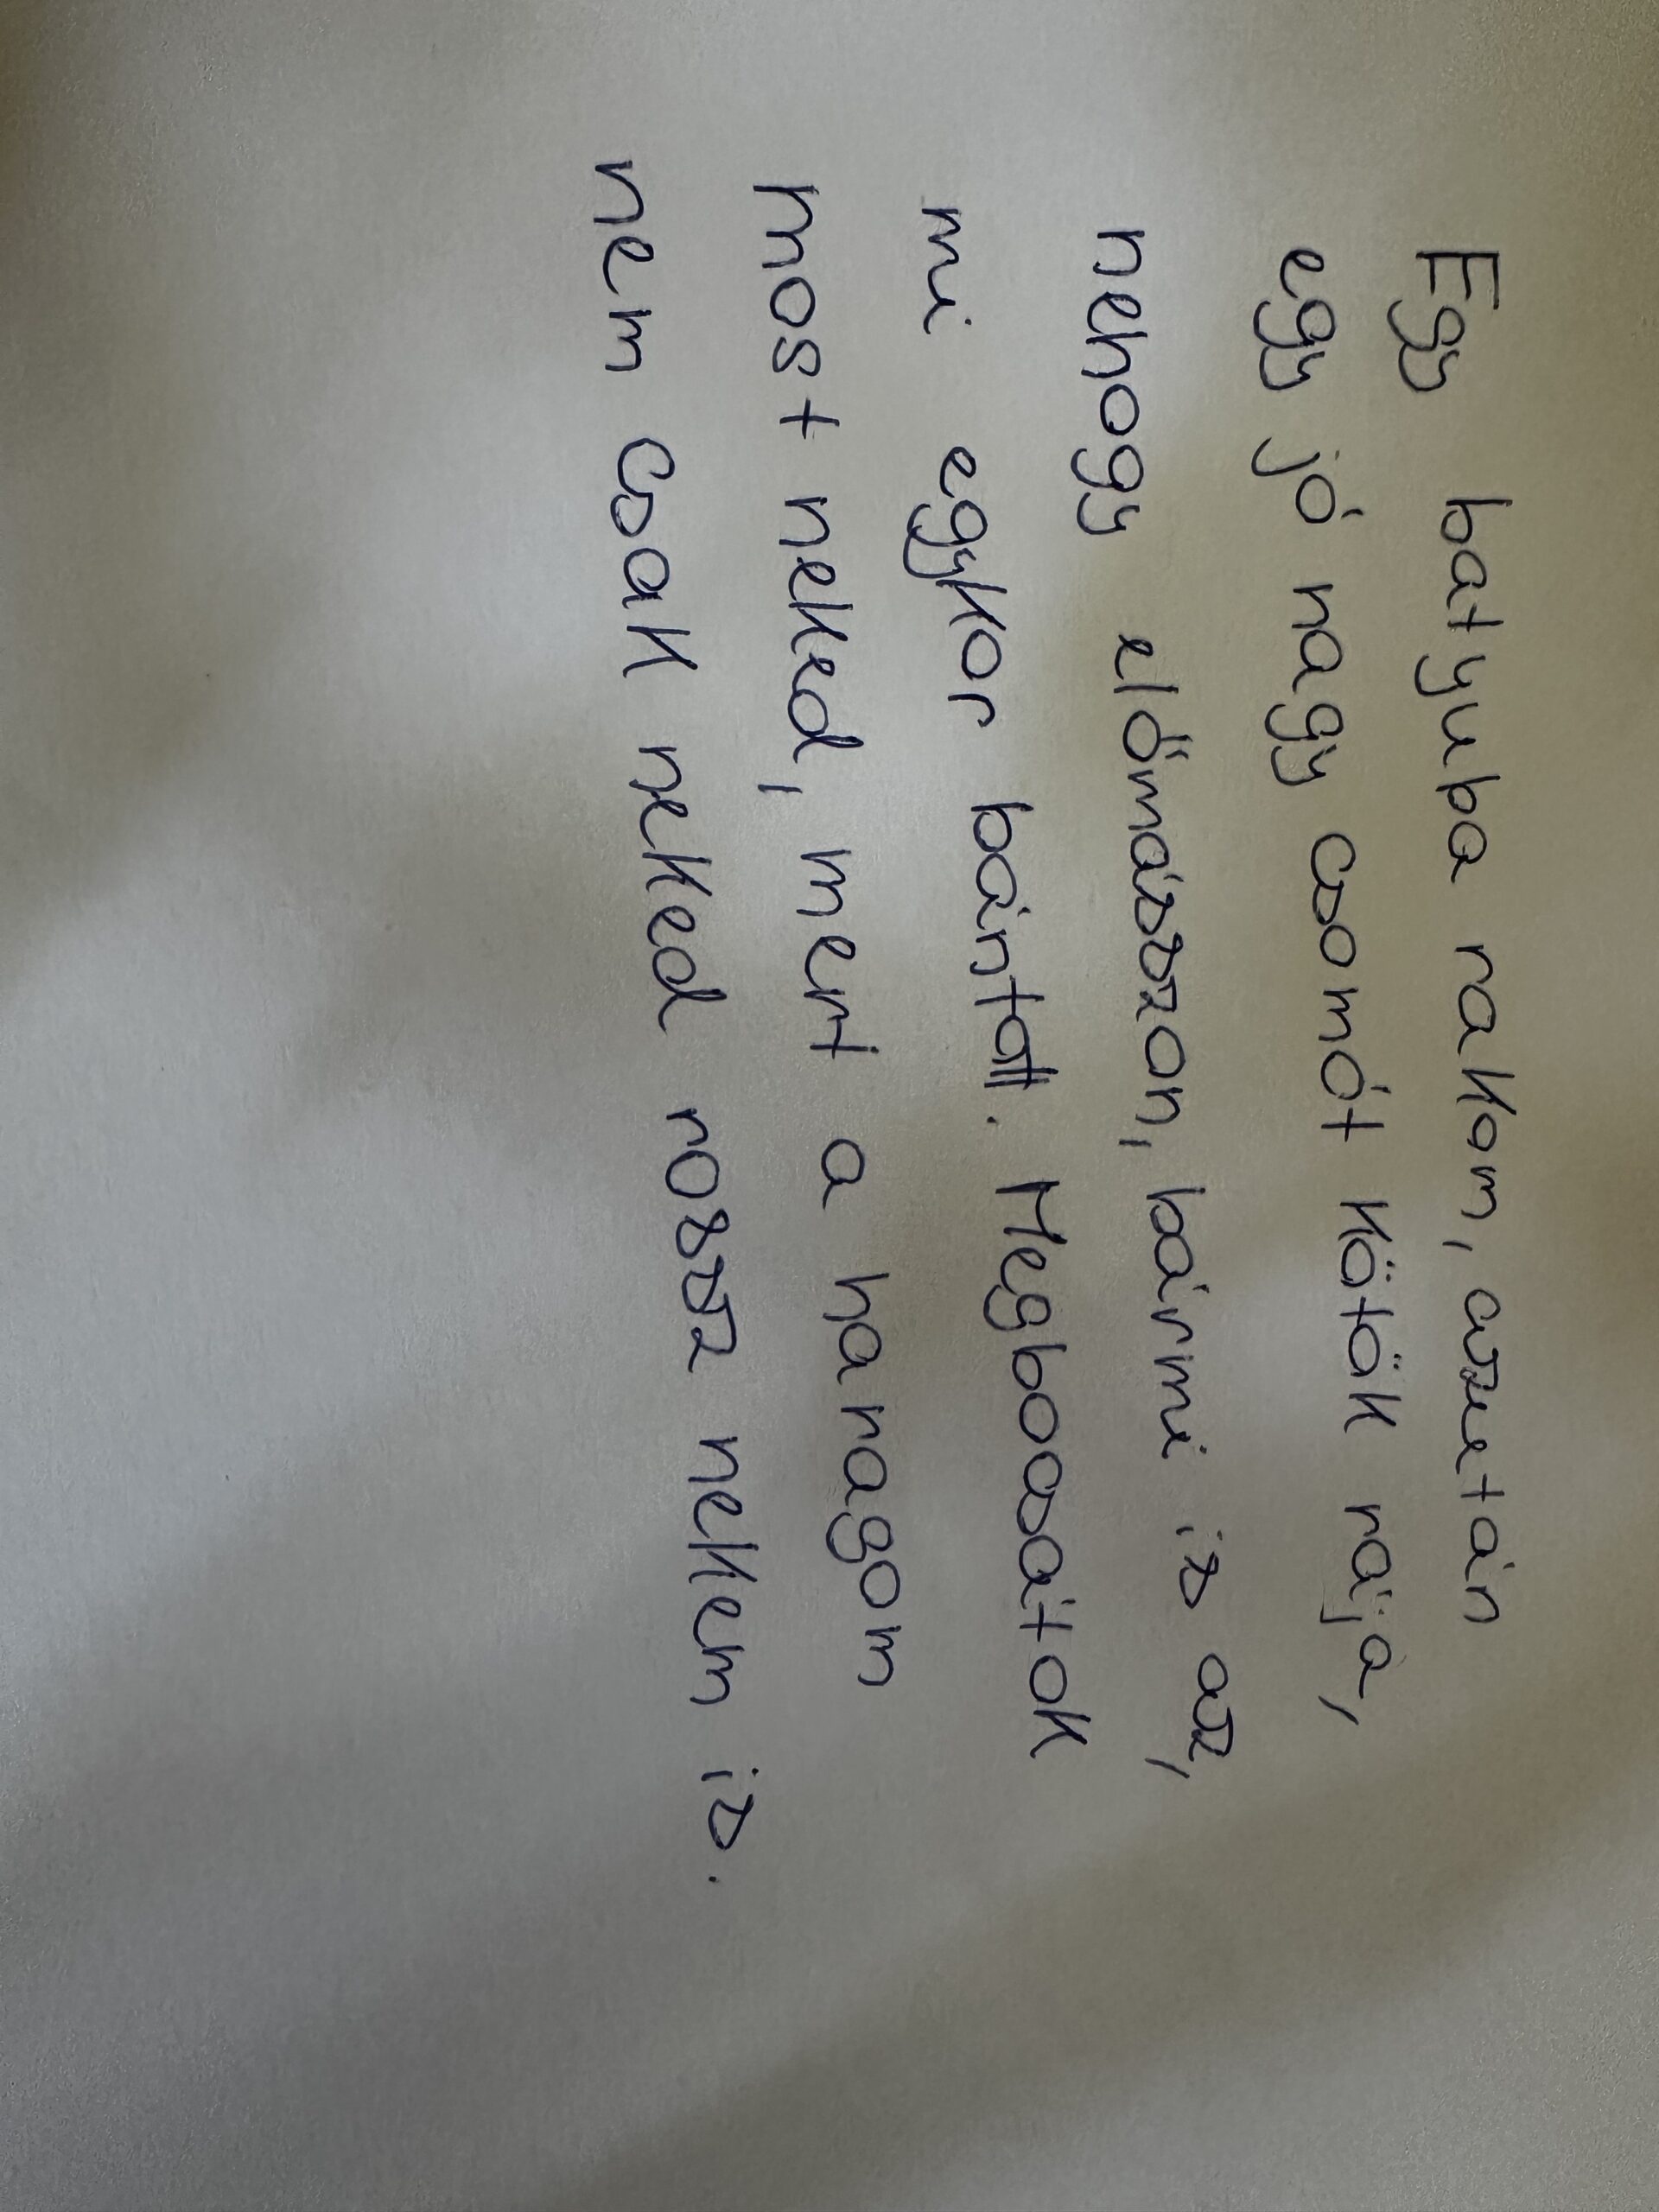 Egy batyuba rakom, azután
egy jó nagy csomót kötök rája,
nehogy előmásszon, bármi is az,
mi egykor bántott. Megbocsátok
most neked, mert a haragom
nem csak neked rossz nekem is.